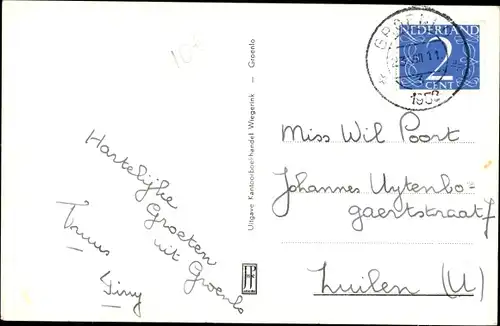 108
GROENLO
1953
NEDERLAND
2
CENT
Uitgave Kantoorboekhandel Wiegerink — Groenlo
Hartelijke
Groeten
uit Groenlo
Truus
Giny
JosPé
Miss Wil Poort
Johannes Uytenbo-
gaertstraat 7
Zuilen (U)